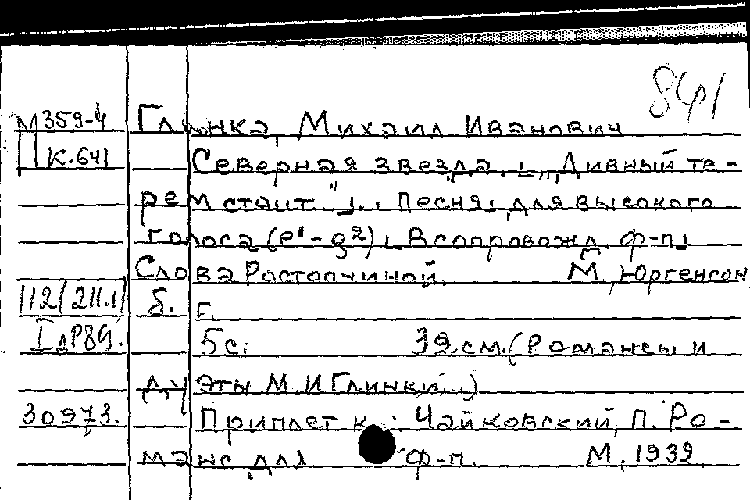 841
М359-4 Глинка, Михаил Иванович
П К.641 Северная звезда. („Дивный те-
рем стоит"). Песня для высокого
голоса (e¹-g²). В сопровожд. ф-п.
Слова Растопчиной. М, Юргенсон
112/211.1/ б. г.
I дР89. 5с. 39 см. (Романсы и
дуэты М. И Глинки.)
30973. Приплет к: Чайковский, П. Ро-
манс для ф-п. М, 1939